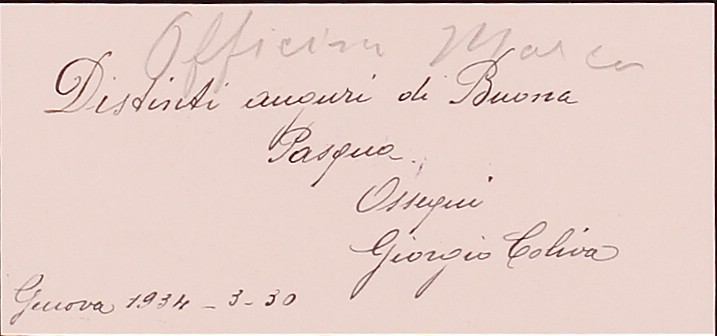 Officina Marco
Distinti auguri di Buona
Pasqua.
Ossequi
Giorgio Coliva
Genova 1934 - 3 - 30